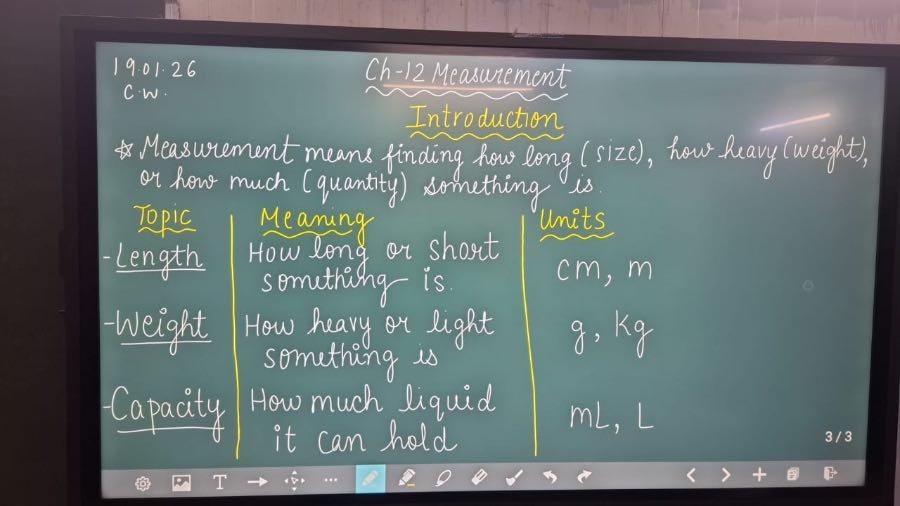 19.01.26
C.W.
Ch-12 Measurement
Introduction
☆ Measurement means finding how long (size), how heavy (weight),
or how much (quantity) something is.
Topic Meaning Units
- Length How long or short something is. cm, m
- Weight How heavy or light something is g, Kg
- Capacity How much liquid it can hold mL, L
3/3
T